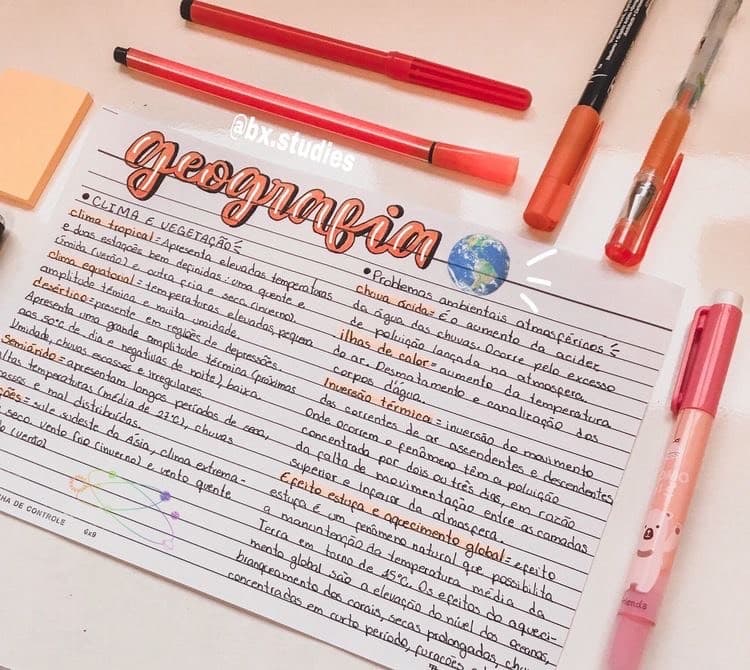 @bx.studies
geografia
• CLIMA E VEGETAÇÃO
clima tropical = Apresenta elevadas temperaturas
e duas estações bem definidas: uma quente e
úmida (verão) e outra fria e seca (inverno)
clima equatorial = temperaturas elevadas, pequena
amplitude térmica e muita umidade.
desértico = presente em regiões de depressões.
Apresenta uma grande amplitude térmica (próximas
aos 50°C de dia e negativas de noite), baixa
umidade, chuvas escassas e irregulares.
Semiárido = apresentam longos períodos de seca,
altas temperaturas (média de 27°C), chuvas
e mal distribuídas.
= sul e sudeste da Ásia, clima extrema-
seco, vento frio (inverno) e vento quente
(verão)
DE CONTROLE
6x9
• Problemas ambientais atmosféricos
chuva ácida = É o aumento da acidez
da água das chuvas. Ocorre pelo excesso
de poluição lançada na atmosfera
ilhas de calor = aumento da temperatura
do ar. Desmatamento e canalização dos
corpos d'água.
Inversão térmica = inversão do movimento
das correntes de ar ascendentes e descendentes
Onde ocorrem o fenômeno têm a poluição
concentrada por dois ou três dias, em razão
da falta de movimentação entre as camadas
superior e inferior da atmosfera
Efeito estufa e aquecimento global = efeito
estufa é um fenômeno natural que possibilita
a manuntenção da temperatura média da
Terra em torno de 15°C. Os efeitos do aqueci-
mento global são a elevação do nível dos oceanos,
branqueamento dos corais, secas prolongadas,
concentradas em curto período, furacões e